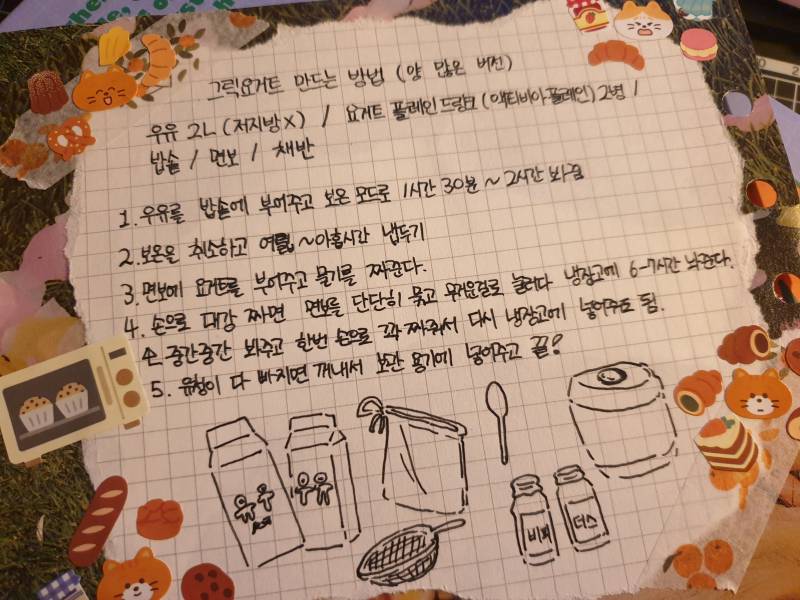 그릭요거트 만드는 방법 (양 많은 버전)
우유 2L (저지방X) / 요거트 플레인 드링크 (액티비아 플레인) 2병 /
밥솥 / 면보 / 채반
1. 우유를 밥솥에 부어주고 보온 모드로 1시간 30분 ~ 2시간 놔둠
2. 보온을 취소하고 여덟~아홉시간 냅두기
3. 면보에 요거트를 부어주고 물기를 짜준다.
4. 손으로 대강 짜면 면보를 단단히 묶고 무거운걸로 눌러다 냉장고에 6-7시간 놔둔다.
중간중간 봐주고 한번 손으로 꽉 짜줘서 다시 냉장고에 넣어주도 됨.
5. 유청이 다 빠지면 꺼내서 보관 용기에 넣어주고 끝?
비피
더스